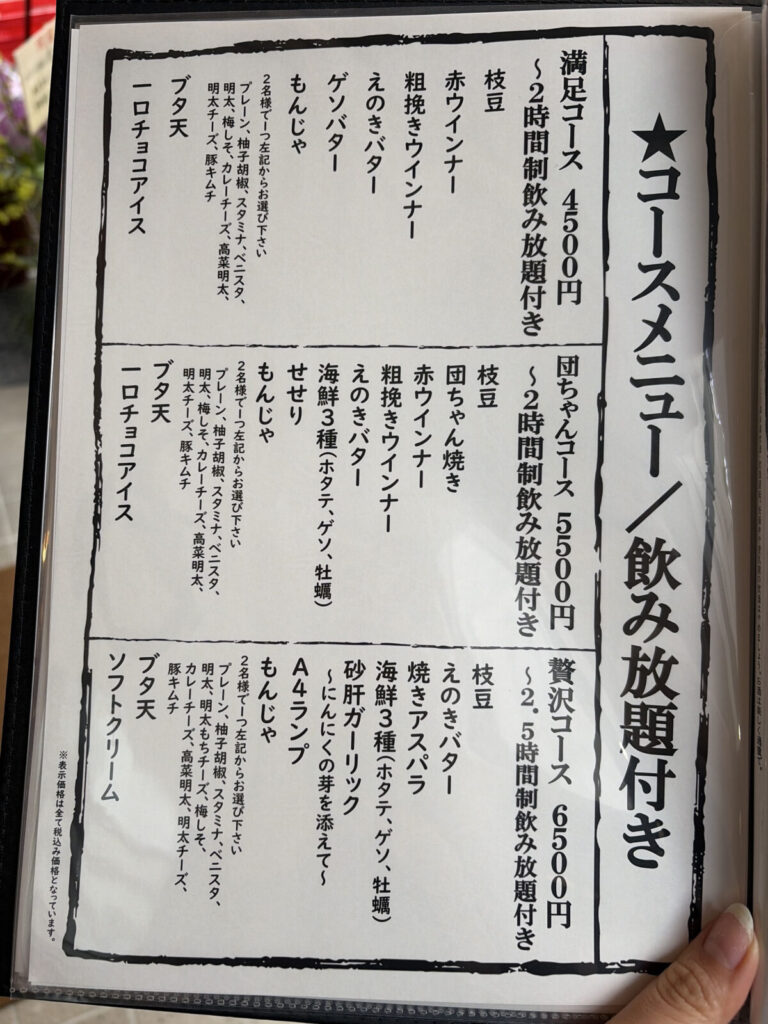 ★コースメニュー/飲み放題付き
満足コース 4500円
~2時間制飲み放題付き
枝豆
赤ウインナー
粗挽きウインナー
えのきバター
ゲソバター
もんじゃ
2名様で一つ左記からお選び下さい
プレーン、柚子胡椒、スタミナ、ベニスタ、
明太、梅しそ、カレーチーズ、高菜明太、
明太チーズ、豚キムチ
ブタ天
一口チョコアイス
団ちゃんコース 5500円
~2時間制飲み放題付き
枝豆
団ちゃん焼き
赤ウインナー
粗挽きウインナー
えのきバター
海鮮3種(ホタテ、ゲソ、牡蠣)
せせり
もんじゃ
2名様で一つ左記からお選び下さい
プレーン、柚子胡椒、スタミナ、ベニスタ、
明太、梅しそ、カレーチーズ、高菜明太、
明太チーズ、豚キムチ
ブタ天
一口チョコアイス
贅沢コース 6500円
~2.5時間制飲み放題付き
枝豆
えのきバター
焼きアスパラ
海鮮3種(ホタテ、ゲソ、牡蠣)
砂肝ガーリック
~にんにくの芽を添えて~
A4ランプ
もんじゃ
2名様で一つ左記からお選び下さい
プレーン、柚子胡椒、スタミナ、ベニスタ、
明太、明太もちチーズ、梅しそ、
カレーチーズ、高菜明太、明太チーズ、
豚キムチ
ブタ天
ソフトクリーム
※表示価格は全て税込み価格となっています。